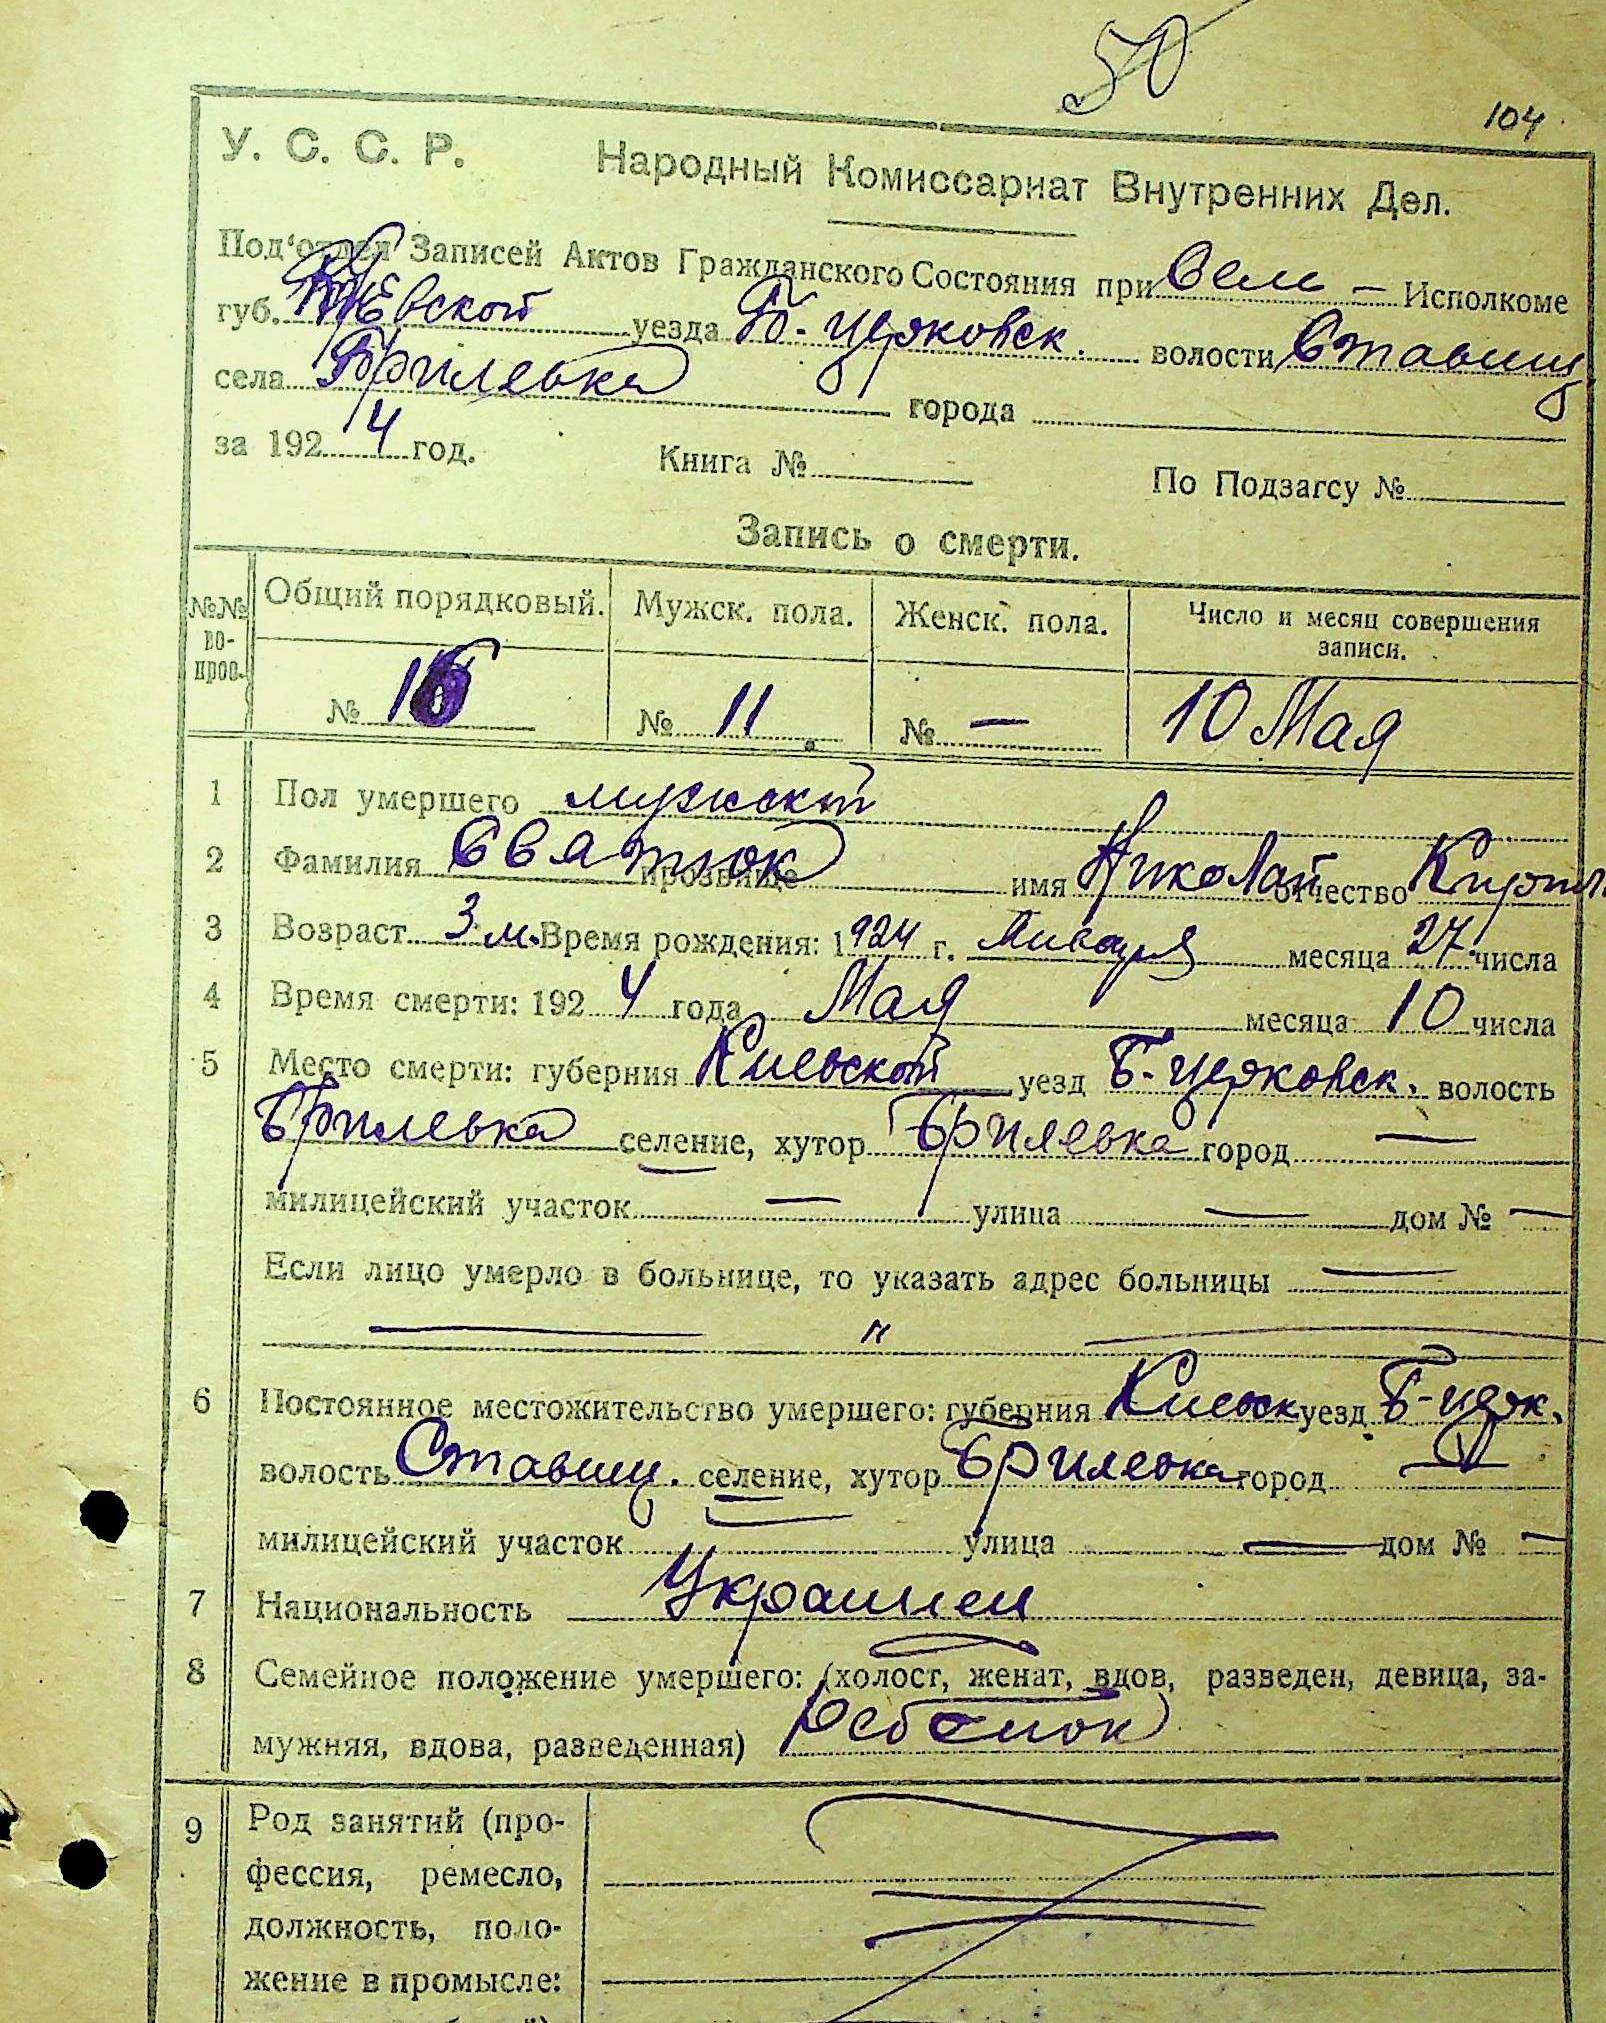 50
104
У. С. С. Р. Народный Комиссариат Внутренних Дел.
Под'отдел Записей Актов Гражданского Состояния при Сель – Исполкоме
губ. Киевской уезда Б-церковск. волости Ставищ
села Брилевка города
за 1924 год. Книга № По Подзагсу №
Запись о смерти.
№№ во-прос. Общий порядковый. Мужск. пола. Женск. пола. Число и месяц совершения записи.
№ 16 № 11 № — 10 Мая
1 Пол умершего мужской
2 Фамилия прозвище Святюк имя Николай отчество Кирил.
3 Возраст 3 м. Время рождения: 1924 г. Января месяца 27 числа
4 Время смерти: 1924 года Мая месяца 10 числа
5 Место смерти: губерния Киевской уезд Б-церковск. волость
Брилевка селение, хутор Брилевка город —
милицейский участок — улица — дом № —
Если лицо умерло в больнице, то указать адрес больницы —
— " —
6 Постоянное местожительство умершего: губерния Киевск уезд Б-церк.
волость Ставищ. селение, хутор Брилевка город —
милицейский участок улица — дом № —
7 Национальность Украинец
8 Семейное положение умершего: (холост, женат, вдов, разведен, девица, за-
мужняя, вдова, разведенная) Ребенок
9 Род занятий (про-
фессия, ремесло,
должность, поло-
жение в промысле: